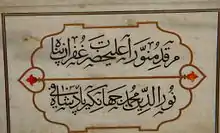 مرقد منور اعلیحضرت غفران پناه
نور الدین محمد جهانگیر پادشاه